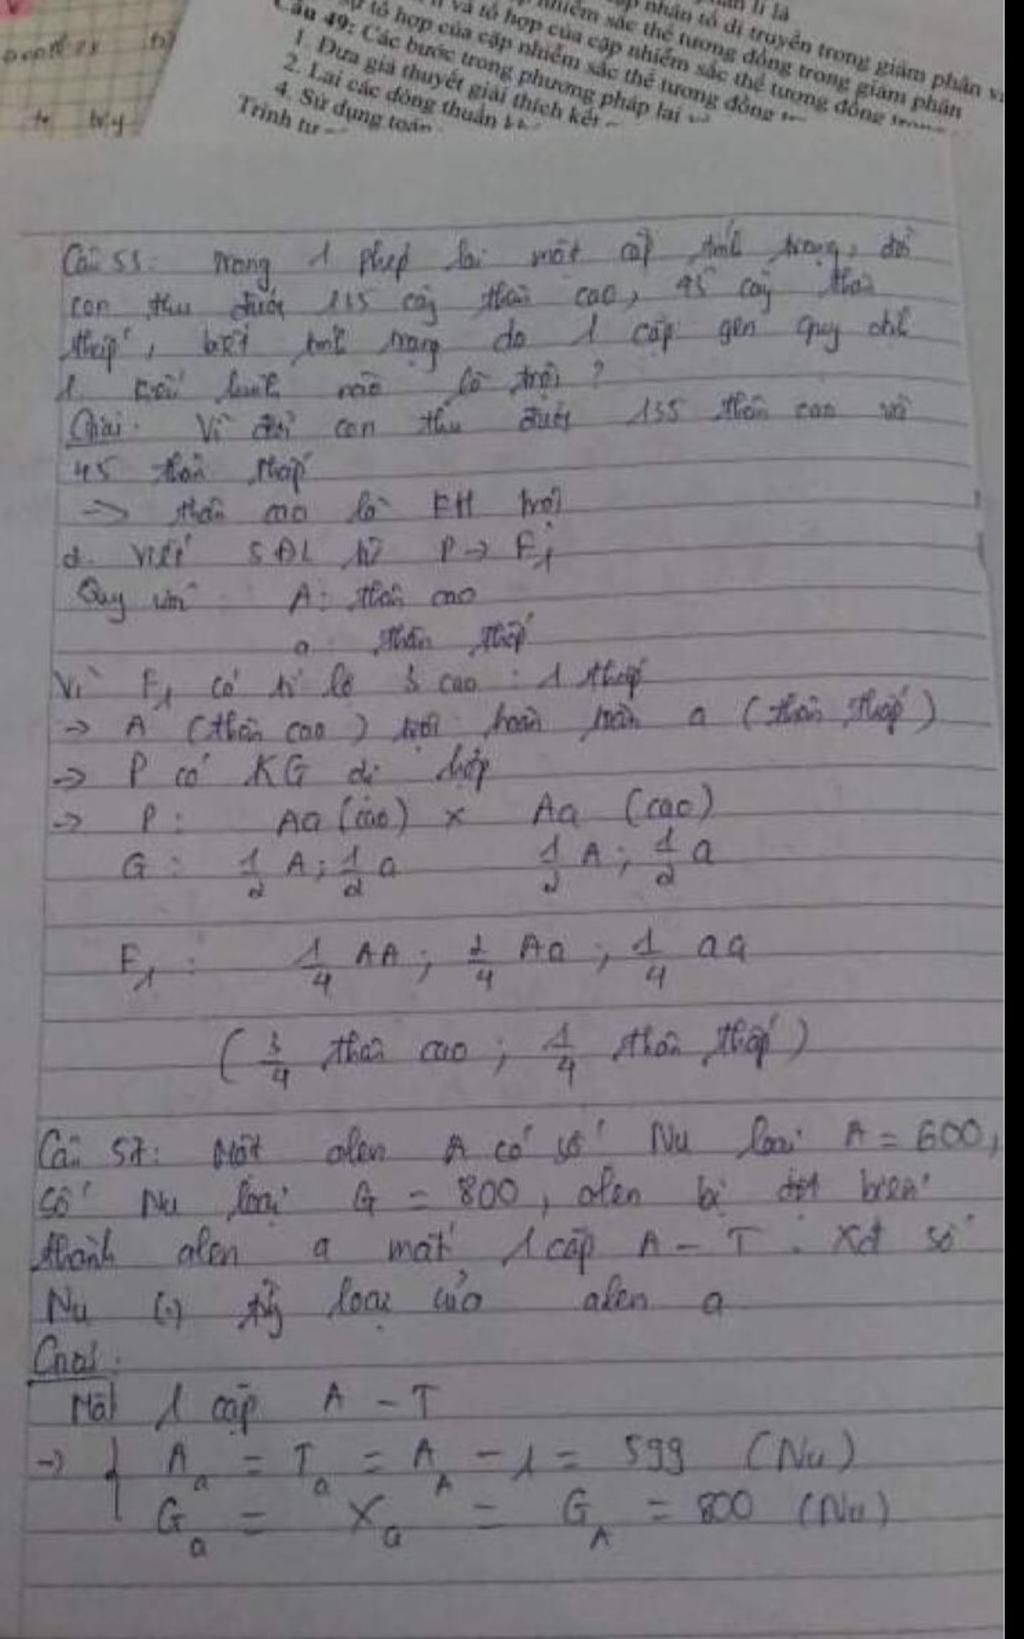 nhân tố di truyền trong giảm phân
và tổ hợp của cặp nhiễm sắc thể tương đồng trong giảm phân
tổ hợp của cặp nhiễm sắc thể tương đồng
Câu 49: Các bước trong phương pháp lai
1. Đưa giả thuyết giải thích kết
2. Lai các dòng thuần
4. Sử dụng toán
Trình tự
Câu 55: Trong 1 phép lai một cặp tính trạng, đời
con thu được 135 cây thân cao, 45 cây thân
thấp, biết tính trạng do 1 cặp gen quy
1. Kiểu hình nào là trội?
Giải: Vì đời con thu được 135 thân cao và
45 thân thấp
-> thân cao là KH trội
2. Viết SĐL từ P -> F1
Quy ước A: thân cao
a: thân thấp
Vì F1 có tỉ lệ 3 cao : 1 thấp
-> A (thân cao) trội hoàn toàn a (thân thấp)
-> P có KG dị hợp
-> P: Aa (cao) x Aa (cao)
G: 1/2 A; 1/2 a 1/2 A; 1/2 a
F1: 1/4 AA; 2/4 Aa; 1/4 aa
(3/4 thân cao; 1/4 thân thấp)
Câu 57: Một alen A có số Nu loại A = 600,
số Nu loại G = 800, alen bị đột biến
thành alen a mất 1 cặp A - T. Xđ số
Nu (.) từng loại của alen a
Giải:
Mất 1 cặp A - T
-> { Aa = Ta = AA - 1 = 599 (Nu)
Ga = Xa = GA = 800 (Nu)